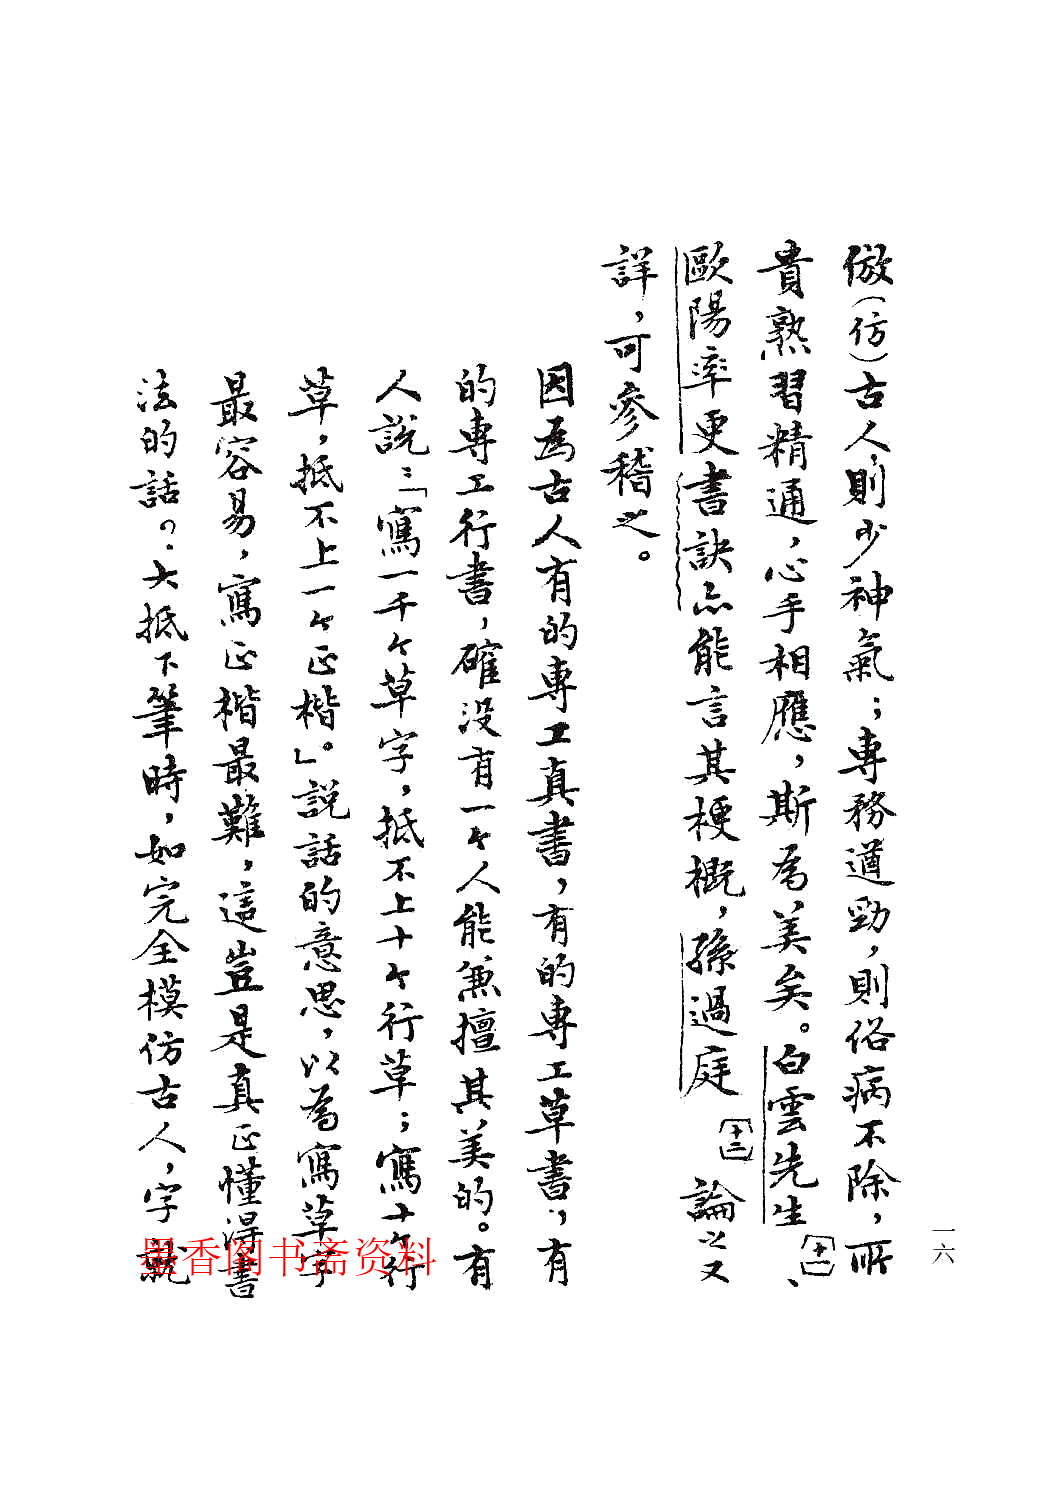 倣(仿)古人,則少神氣;專務遒勁,則俗病不除,所
貴熟習精通,心手相應,斯為美矣。白雲先生[十一]、
歐陽率更書訣亦能言其梗概,孫過庭[十二]論之又
詳,可參稽之。
因為古人有的專工真書,有的專工草書,有
的專工行書,確没有一个人能兼擅其美的。有
人說:「寫一千个草字,抵不上十个行草;寫十个行
草,抵不上一个正楷」。說話的意思,以為寫草字
最容易,寫正楷最難,這豈是真正懂得書
法的話?.大抵下筆時,如完全模仿古人,字就
一六
墨香阁书斋资料